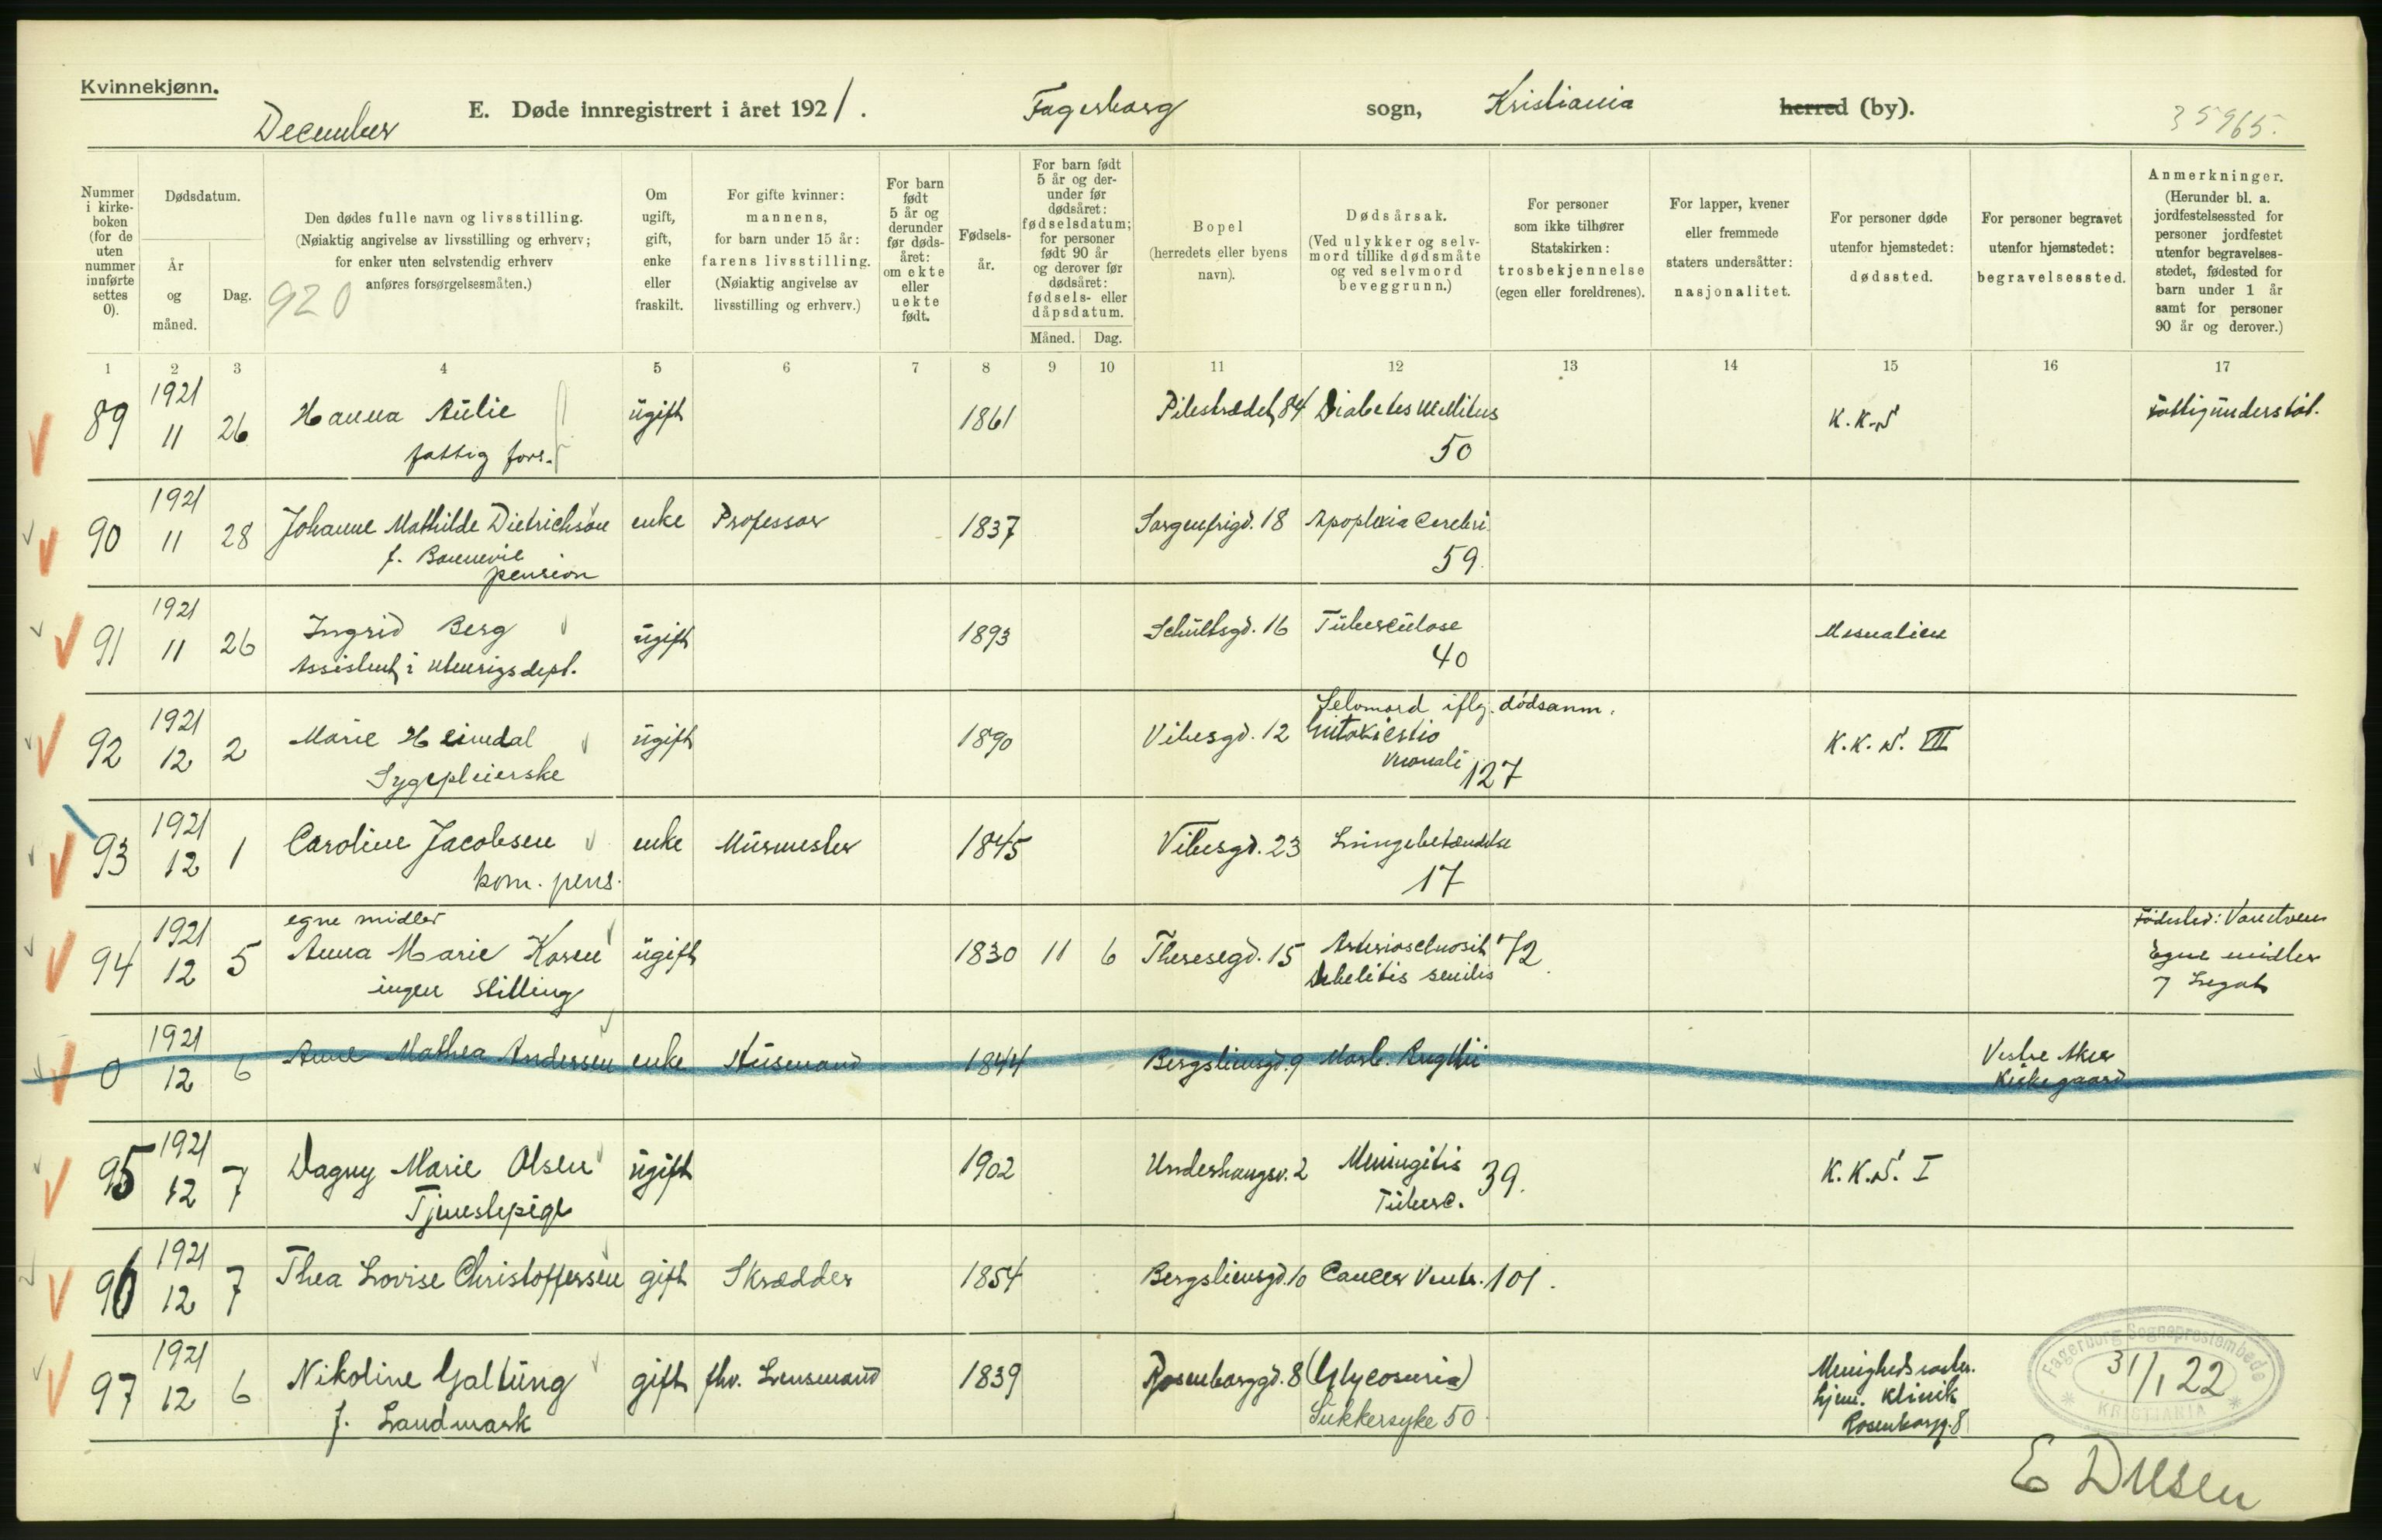 Kvinnekjønn.
December
E. Døde innregistrert i året 1921.
Fagerborg sogn, Kristiania herred (by).
35965.
Nummer i kirkeboken (for de uten nummer innførte settes 0).
Dødsdatum.
År og måned.
Dag.
Den dødes fulle navn og livsstilling.
(Nøiaktig angivelse av livsstilling og erhverv; for enker uten selvstendig erhverv anføres forsørgelsesmåten.)
920
Om ugift, gift, enke eller fraskilt.
For gifte kvinner: mannens, for barn under 15 år: farens livsstilling.
(Nøiaktig angivelse av livsstilling og erhverv.)
For barn født 5 år og derunder før døds-året: om ekte eller uekte født.
Fødsels-år.
For barn født 5 år og der-under før dødsåret: fødselsdatum; for personer født 90 år og derover før dødsåret: fødsels- eller dåpsdatum.
Måned. Dag.
Bopel
(herredets eller byens navn).
Dødsårsak.
(Ved ulykker og selv-mord tillike dødsmåte og ved selvmord beveggrunn.)
For personer som ikke tilhører Statskirken: trosbekjennelse (egen eller foreldrenes).
For lapper, kvener eller fremmede staters undersåtter: nasjonalitet.
For personer døde utenfor hjemstedet: dødssted.
For personer begravet utenfor hjemstedet: begravelsessted.
Anmerkninger.
(Herunder bl. a. jordfestelsessted for personer jordfestet utenfor begravelses-stedet, fødested for barn under 1 år samt for personer 90 år og derover.)
1 2 3 4 5 6 7 8 9 10 11 12 13 14 15 16 17
89 1921 11 26 Hanna Aulie ugift 1861 Pilestrædet 84 Diabetes mellitus K.K.S fattigunderstøt.
fattig fors. 50
90 1921 11 28 Johanne Mathilde Dietrichson enke Professor 1837 Sorgenfrigd. 18 Apoplexia Cerebri
f. Bonnevie 59.
pension
91 1921 11 26 Ingrid Berg ugift 1893 Schultsgd. 16 Tuberculose Mesnalien
Assistent i utenrigsdept. 40
92 1921 12 2 Marie Heimdal ugift 1890 Vibesgd. 12 Selvmord iflg. dødsanm. K.K.S. VII
Sygepleierske 127
93 1921 12 1 Caroline Jacobsen enke Murmester 1845 Vibesgd. 23 Lungebetændelse
kom. pens. 17
egne midler
94 1921 12 5 Anna Marie ugift 1830 11 6 Theresegd. 15 72 Fødested:
ingen stilling senilis Egne midler
Legat
0 1921 12 6 Anne Mathea Andersen enke Husmand 1844 Bergsliensgd. 9 Morb. Vestre Aker
Kirkegaard
95 1921 12 7 Dagny Marie Olsen ugift 1902 Underhaugsv. 2 Meningitis 39. K.K.S. I
Tjenestepige Tuberc.
96 1921 12 7 Thea Lovise Christoffersen gift Skrædder 1854 Bergsliensgd. 10 Cancer Ventr. 101.
97 1921 12 6 Nikoline Galtung gift fhv. Lensmand 1839 Rosenborggd. 8 (Glycosuria) Menighedssøster.
f. Landmark Sukkersyke 50. hjem. Klinik
Rosenborgg. 8
Fagerborg Sogneprestembede
31/1 22
KRISTIANIA